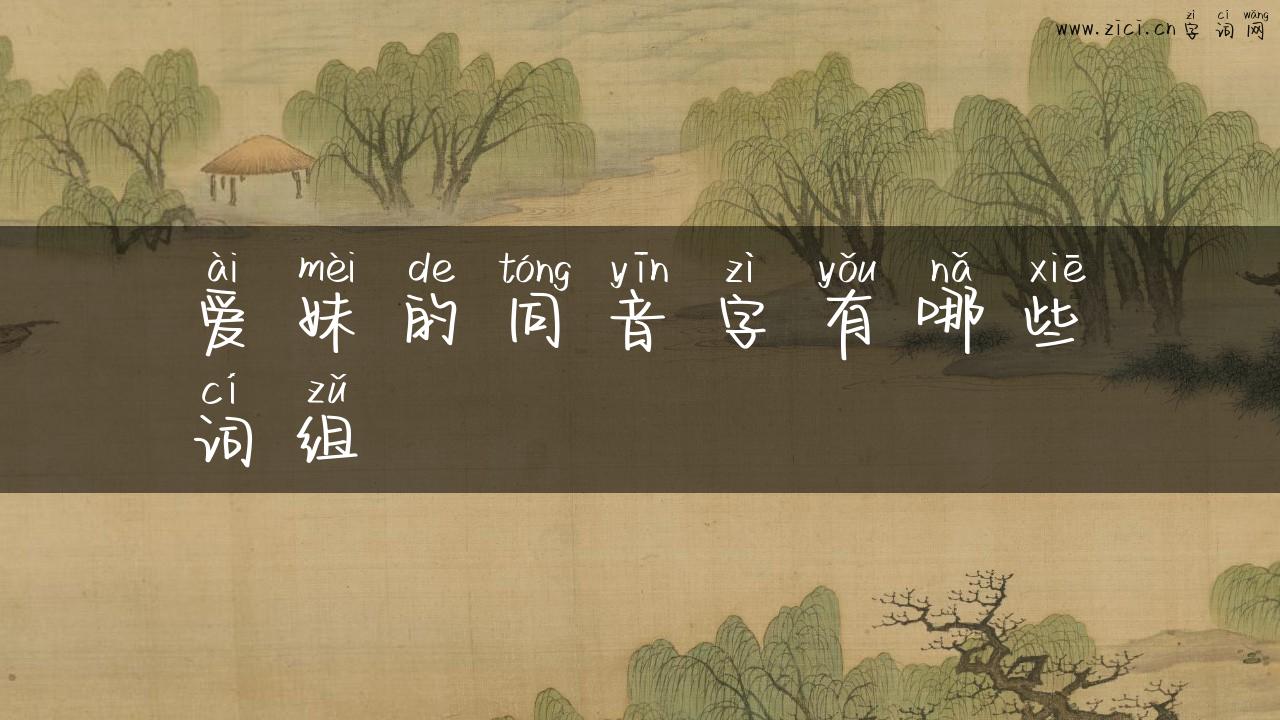 zì cí wǎng
www.zici.cn 字 词 网
ài mèi de tóng yīn zì yǒu nǎ xiē
爱 妹 的 同 音 字 有 哪 些
cí zǔ
词 组